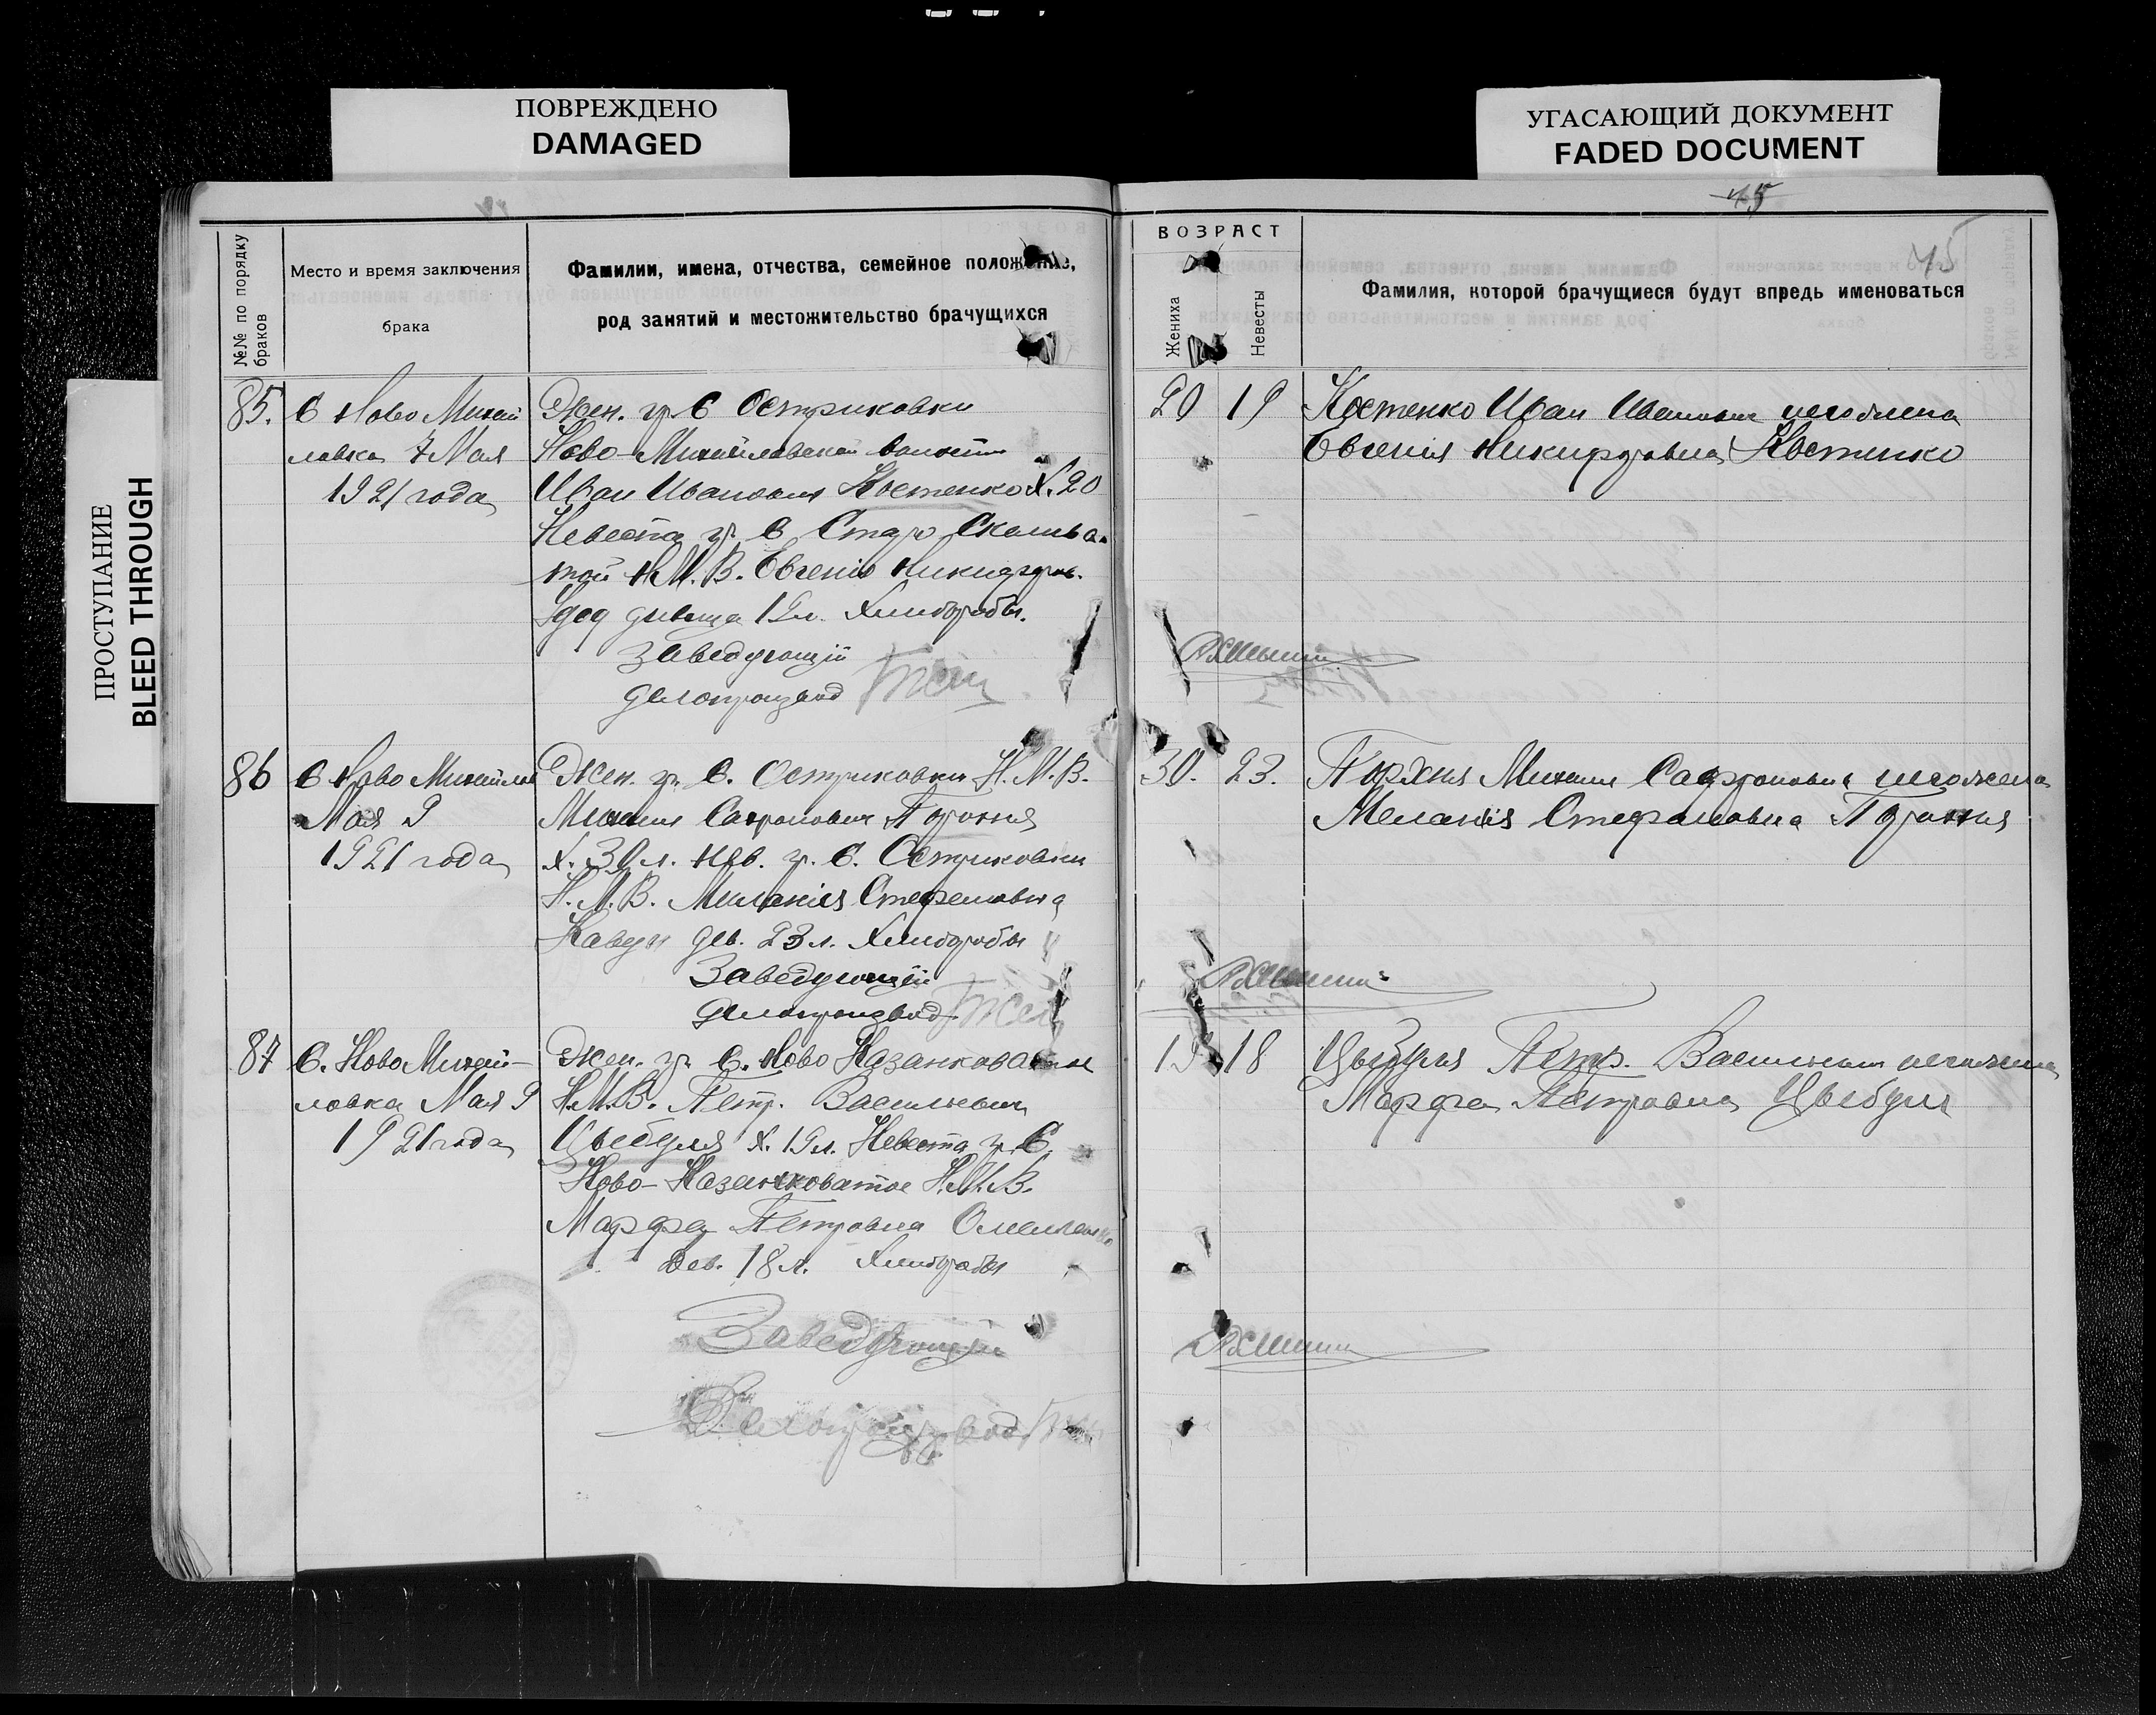 ПОВРЕЖДЕНО
DAMAGED
УГАСАЮЩИЙ ДОКУМЕНТ
FADED DOCUMENT
ПРОСТУПАНИЕ
BLEED THROUGH
45
45
№№ по порядку браков
Место и время заключения
брака
Фамилии, имена, отчества, семейное положение,
род занятий и местожительство брачущихся
ВОЗРАСТ
Жениха
Невесты
Фамилия, которой брачущиеся будут впредь именоваться
85.
С Ново Михай
ловка 7 Мая
1921 года
Жен. гр. С Остриковки
Ново-Михайловской волости
Иван Иванович Костенко Х. 20
Невеста гр. С Старо Скелева-
той Н.М.В. Евгенія Никифоров.
девица 19 л. Хлеборобы.
Заведующій
Делопроизвод
20 19
Костенко Иван Иванович его жена
Евгенія Никифоровна Костенко
86
С Ново Михайлов
Мая 9
1921 года
Жен. гр. С. Остриковки Н.М.В.
Михаил Сафронович
Х. 30 л. Нев. гр. С. Остриковки
Н.М.В. Меланія Стефановна
Кавун дев. 23 л. Хлеборобы
Заведующій
Делопроизвод
30. 23.
Михаил Сафронович его жена
Меланія Стефановна
87
С. Ново Михай-
ловка Мая 9
1921 года
Жен. гр. С. Ново Казанковатое
Н.М.В. Петр. Васильевич
Цыбуля х. 19 л. Невеста гр. С.
Ново-Казанковатое Н.М.В.
Марфа Петровна Омельченко
Дев. 18 л. Хлеборобы
Заведующій
Делопроизвод
19 18
Цыбуля Петр. Васильевич его жена
Марфа Петровна Цыбуля